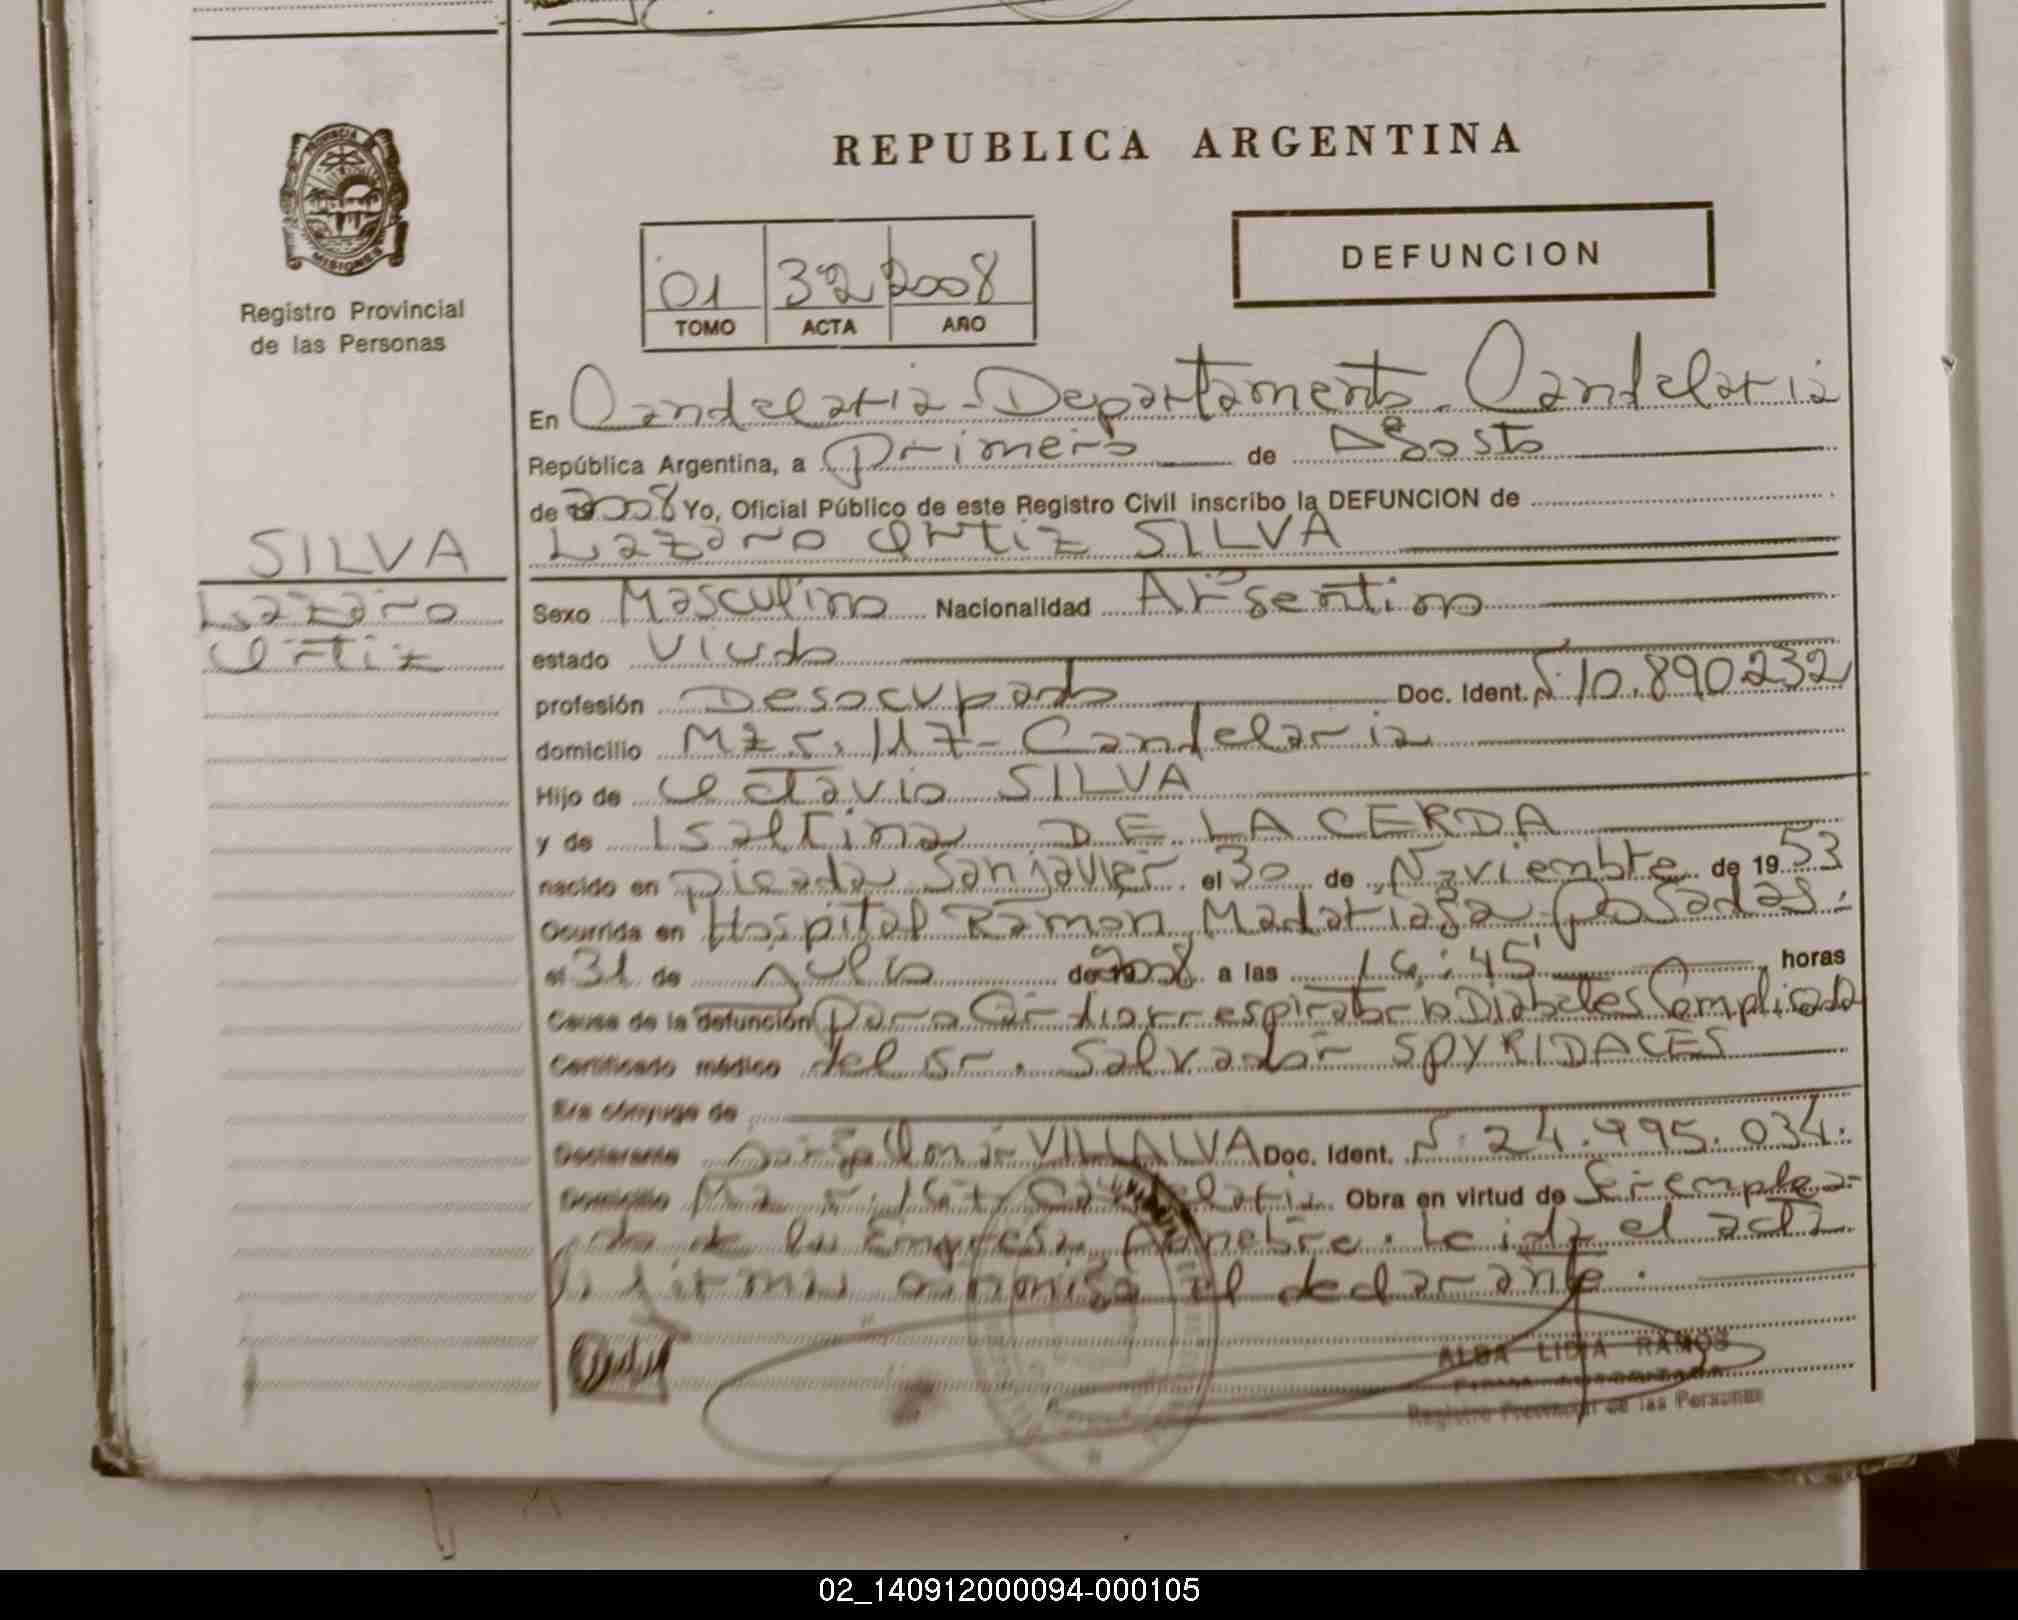 REPUBLICA ARGENTINA
PROVINCIA
MISIONES
Registro Provincial
de las Personas
DEFUNCION
01 32 2008
TOMO ACTA AÑO
En Candelaria - Departamento Candelaria
República Argentina, a primero de Agosto
de 2008 Yo, Oficial Público de este Registro Civil inscribo la DEFUNCION de
Lazaro Ortiz SILVA
SILVA
Lazaro
Ortiz
Sexo Masculino Nacionalidad Argentino
estado Viudo
profesión Desocupado Doc. Ident. N: 10.890.232
domicilio Mz r. 117 - Candelaria
Hijo de Octavio SILVA
y de Isaltina DE LA CERDA
nacido en picada San javier el 30 de Noviembre de 1953
Ocurrida en Hospital Ramon Madariaga - Posadas.
el 31 de Julio de 2008 a las 16:45 horas
Causa de la defunción Paro Cardiorrespiratorio Diabetes Complicada
Certificado médico del Dr. Salvador SPYRIDACES
Era cónyuge de
Declarante VILLALVA Doc. Ident. N: 24.995.034.
Domicilio Candelaria. Obra en virtud de Ser emplea-
do de la Empresa funebre. Leida el acta
la firma conmigo el declarante.
ALBA LIDIA RAMOS
FIRMA AUTORIZADA
Registro Provincial de las Personas
02_140912000094-000105